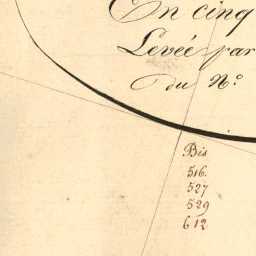 En cinq
Levée par
du N°
Bis
516.
527
529
612